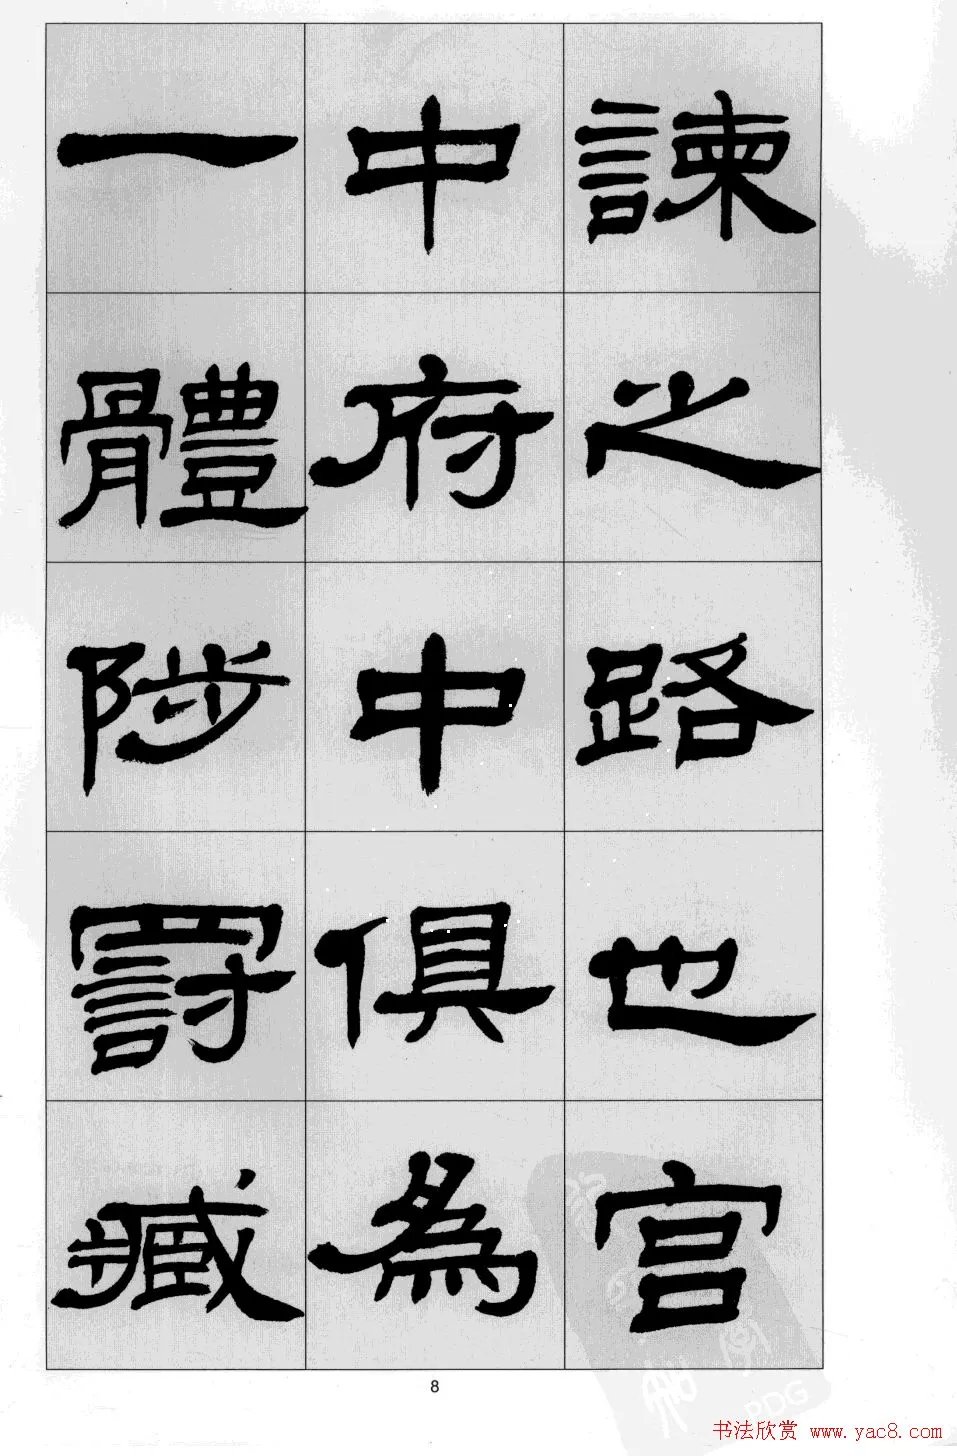 諫之路也宮
中府中俱為
一體陟罰臧
8
PDG
书法欣赏 www.yac8.com